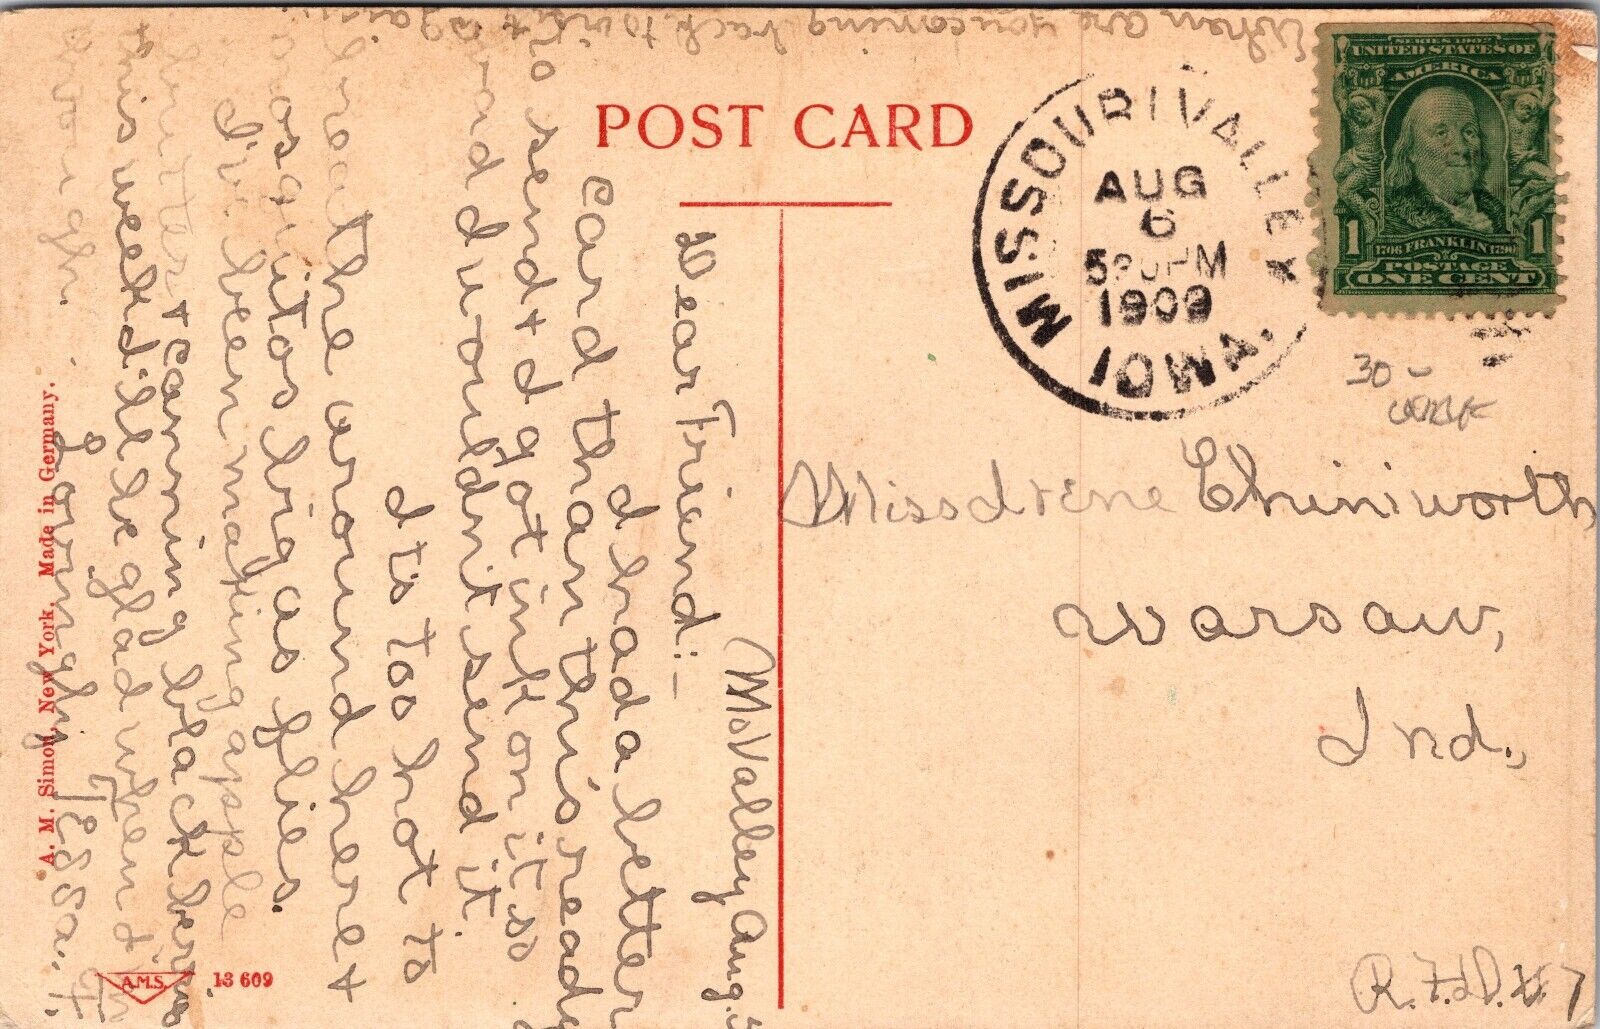 POST CARD
MISSOURI VALLEY
IOWA.
AUG
6
PM
1909
SERIES 1902
UNITED STATES OF
AMERICA
1 1706 FRANKLIN 1790 1
POSTAGE
ONE CENT
30 -
Miss Irene Chiniworth
Warsaw,
Ind.,
R.F.D. # 7
Mo Valley Aug. 5
Dear Friend:-
I had a better
card than this ready
to send & I got ink on it so
and wouldn't send it.
It is too hot to
breathe around here &
mosquitos big as flies.
I've been making apple
butter & canning black berries
this week I'll be glad when I'm
through.
Lovingly Tessa. F.
When are you coming back to visit again.
A. M. Simon, New York. Made in Germany.
A.M.S.
13 609